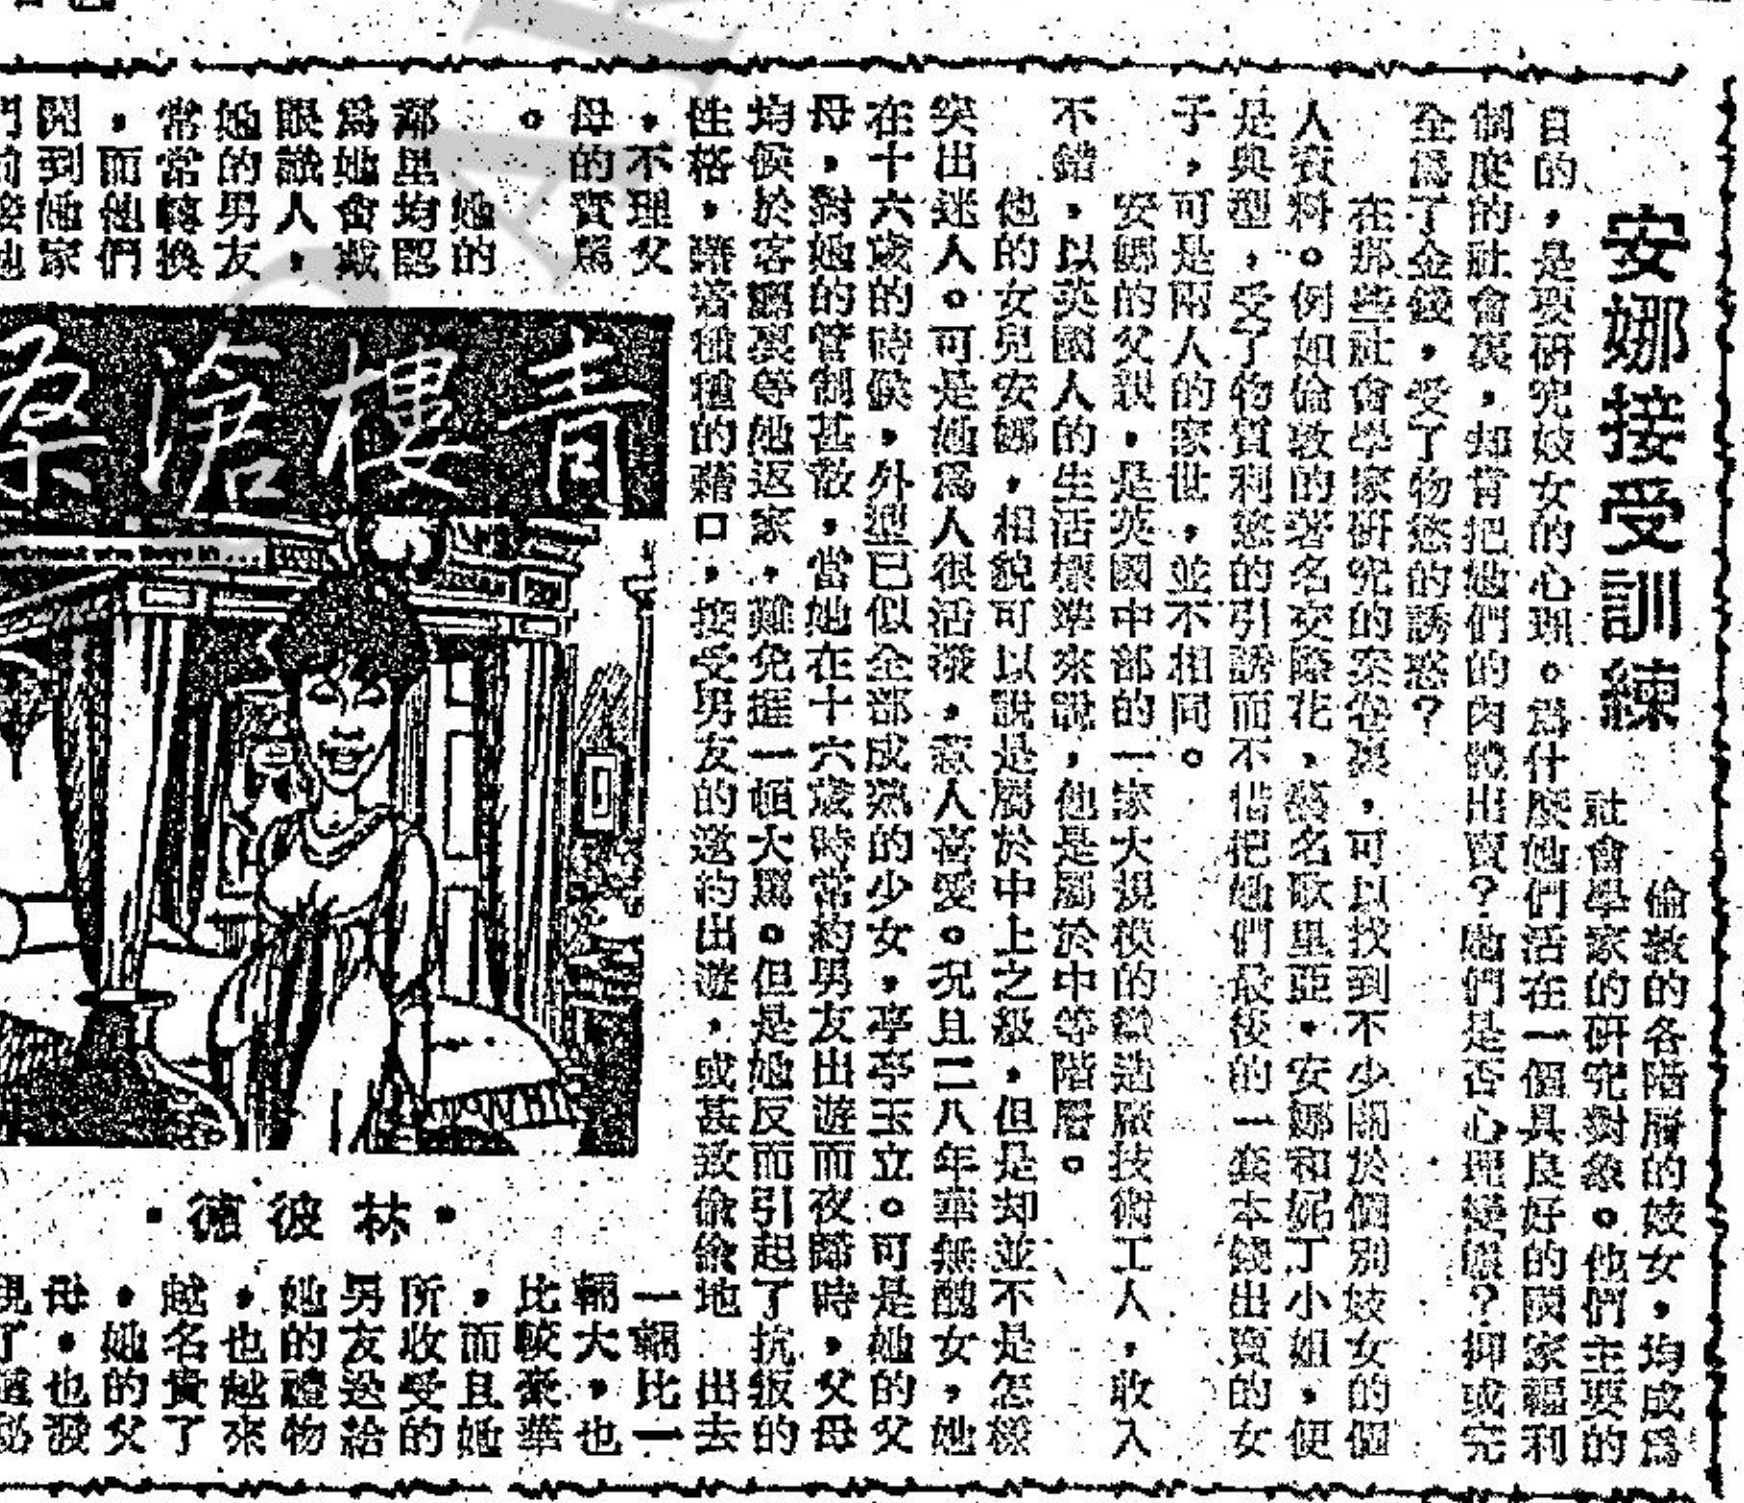 安娜接受訓練
倫敦的各階層的妓女，均成爲
社會學家的研究對象。他們主要的
目的，是要研究妓女的心理。爲什麼她們活在一個具良好的國家福利
制度的社會裏，却肯把她們的肉體出賣？她們是否心理變態？抑或完
全爲了金錢，受了物慾的誘惑？
在那些社會學家研究的案卷裏，可以找到不少關於個別妓女的個
人資料。例如倫敦的著名交際花，藝名歌里亞，安娜和妮丁小姐，便
是典型，受了物質利慾的引誘而不惜把她們最後的一套本錢出賣的女
子，可是兩人的家世，並不相同。
安娜的父親，是英國中部的一家大規模的製造廠技術工人，收入
不錯，以英國人的生活標準來說，他是屬於中等階層。
他的女兒安娜，相貌可以說是屬於中上之級，但是却並不是怎樣
突出迷人。可是她爲人很活潑，惹人喜愛。况且二八年華無醜女，她
在十六歲的時候，外型已似全部成熟的少女，亭亭玉立。可是她的父
母，對她的管制甚嚴，當她在十六歲時常約男友出遊而夜歸時，父母
均候於客廳裏等她返家，難免捱一頓大罵。但是她反而引起了抗叛的
性格，藉着種種的藉口，接受男友的邀約出遊，或甚致偷偷地
出去
，不理父
母的責罵
。
她的
鄰里均認
爲她會戴
眼識人，
她的男友
常常轉換
，而他們
開到她家
門前接她
青樓滄桑
•林彼德•
一輛比一
輛大，也
比較豪華
，而且她
所收受的
男友送給
她的禮物
，也越來
越名貴了
，她的父
母，也發
現了這秘